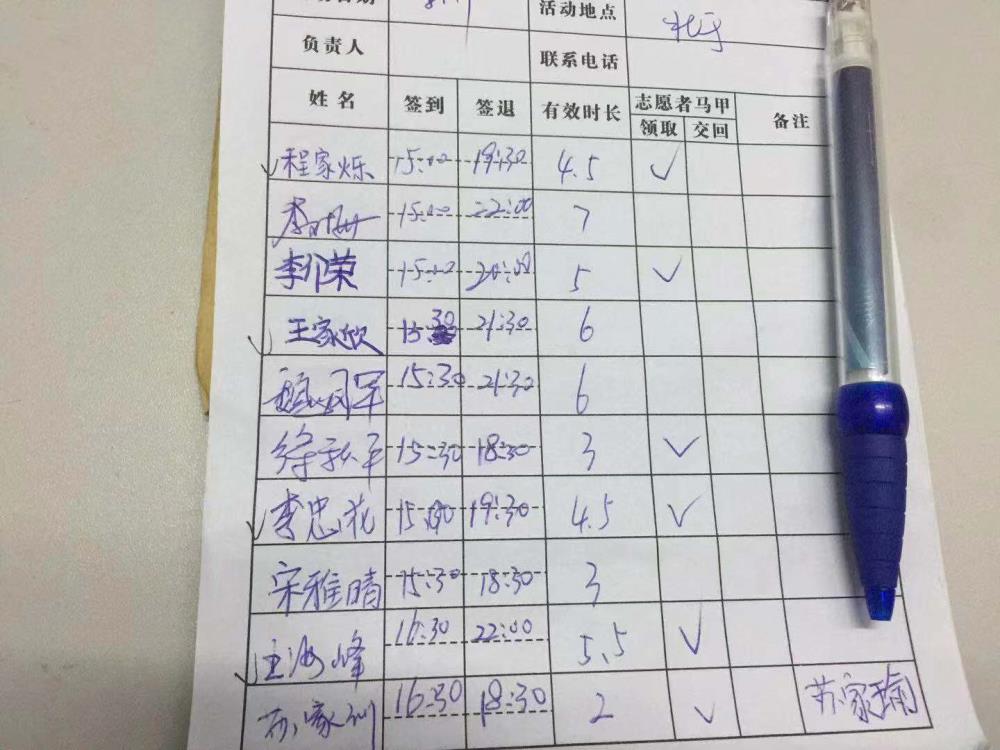 活动地点
负责人 联系电话
姓名 签到 签退 有效时长 志愿者马甲 备注
领取 交回
程家烁 15:00 19:30 4.5 ✓
李 15:00 22:00 7
李 荣 15:00 20:00 5 ✓
王家欣 15:30 21:30 6
15:30 21:30 6
徐秋平 15:30 18:30 3 ✓
李忠花 15:00 19:30 4.5 ✓
宋雅晴 15:30 18:30 3
海峰 16:30 22:00 5.5 ✓
苏家 16:30 18:30 2 ✓ 苏家瑜